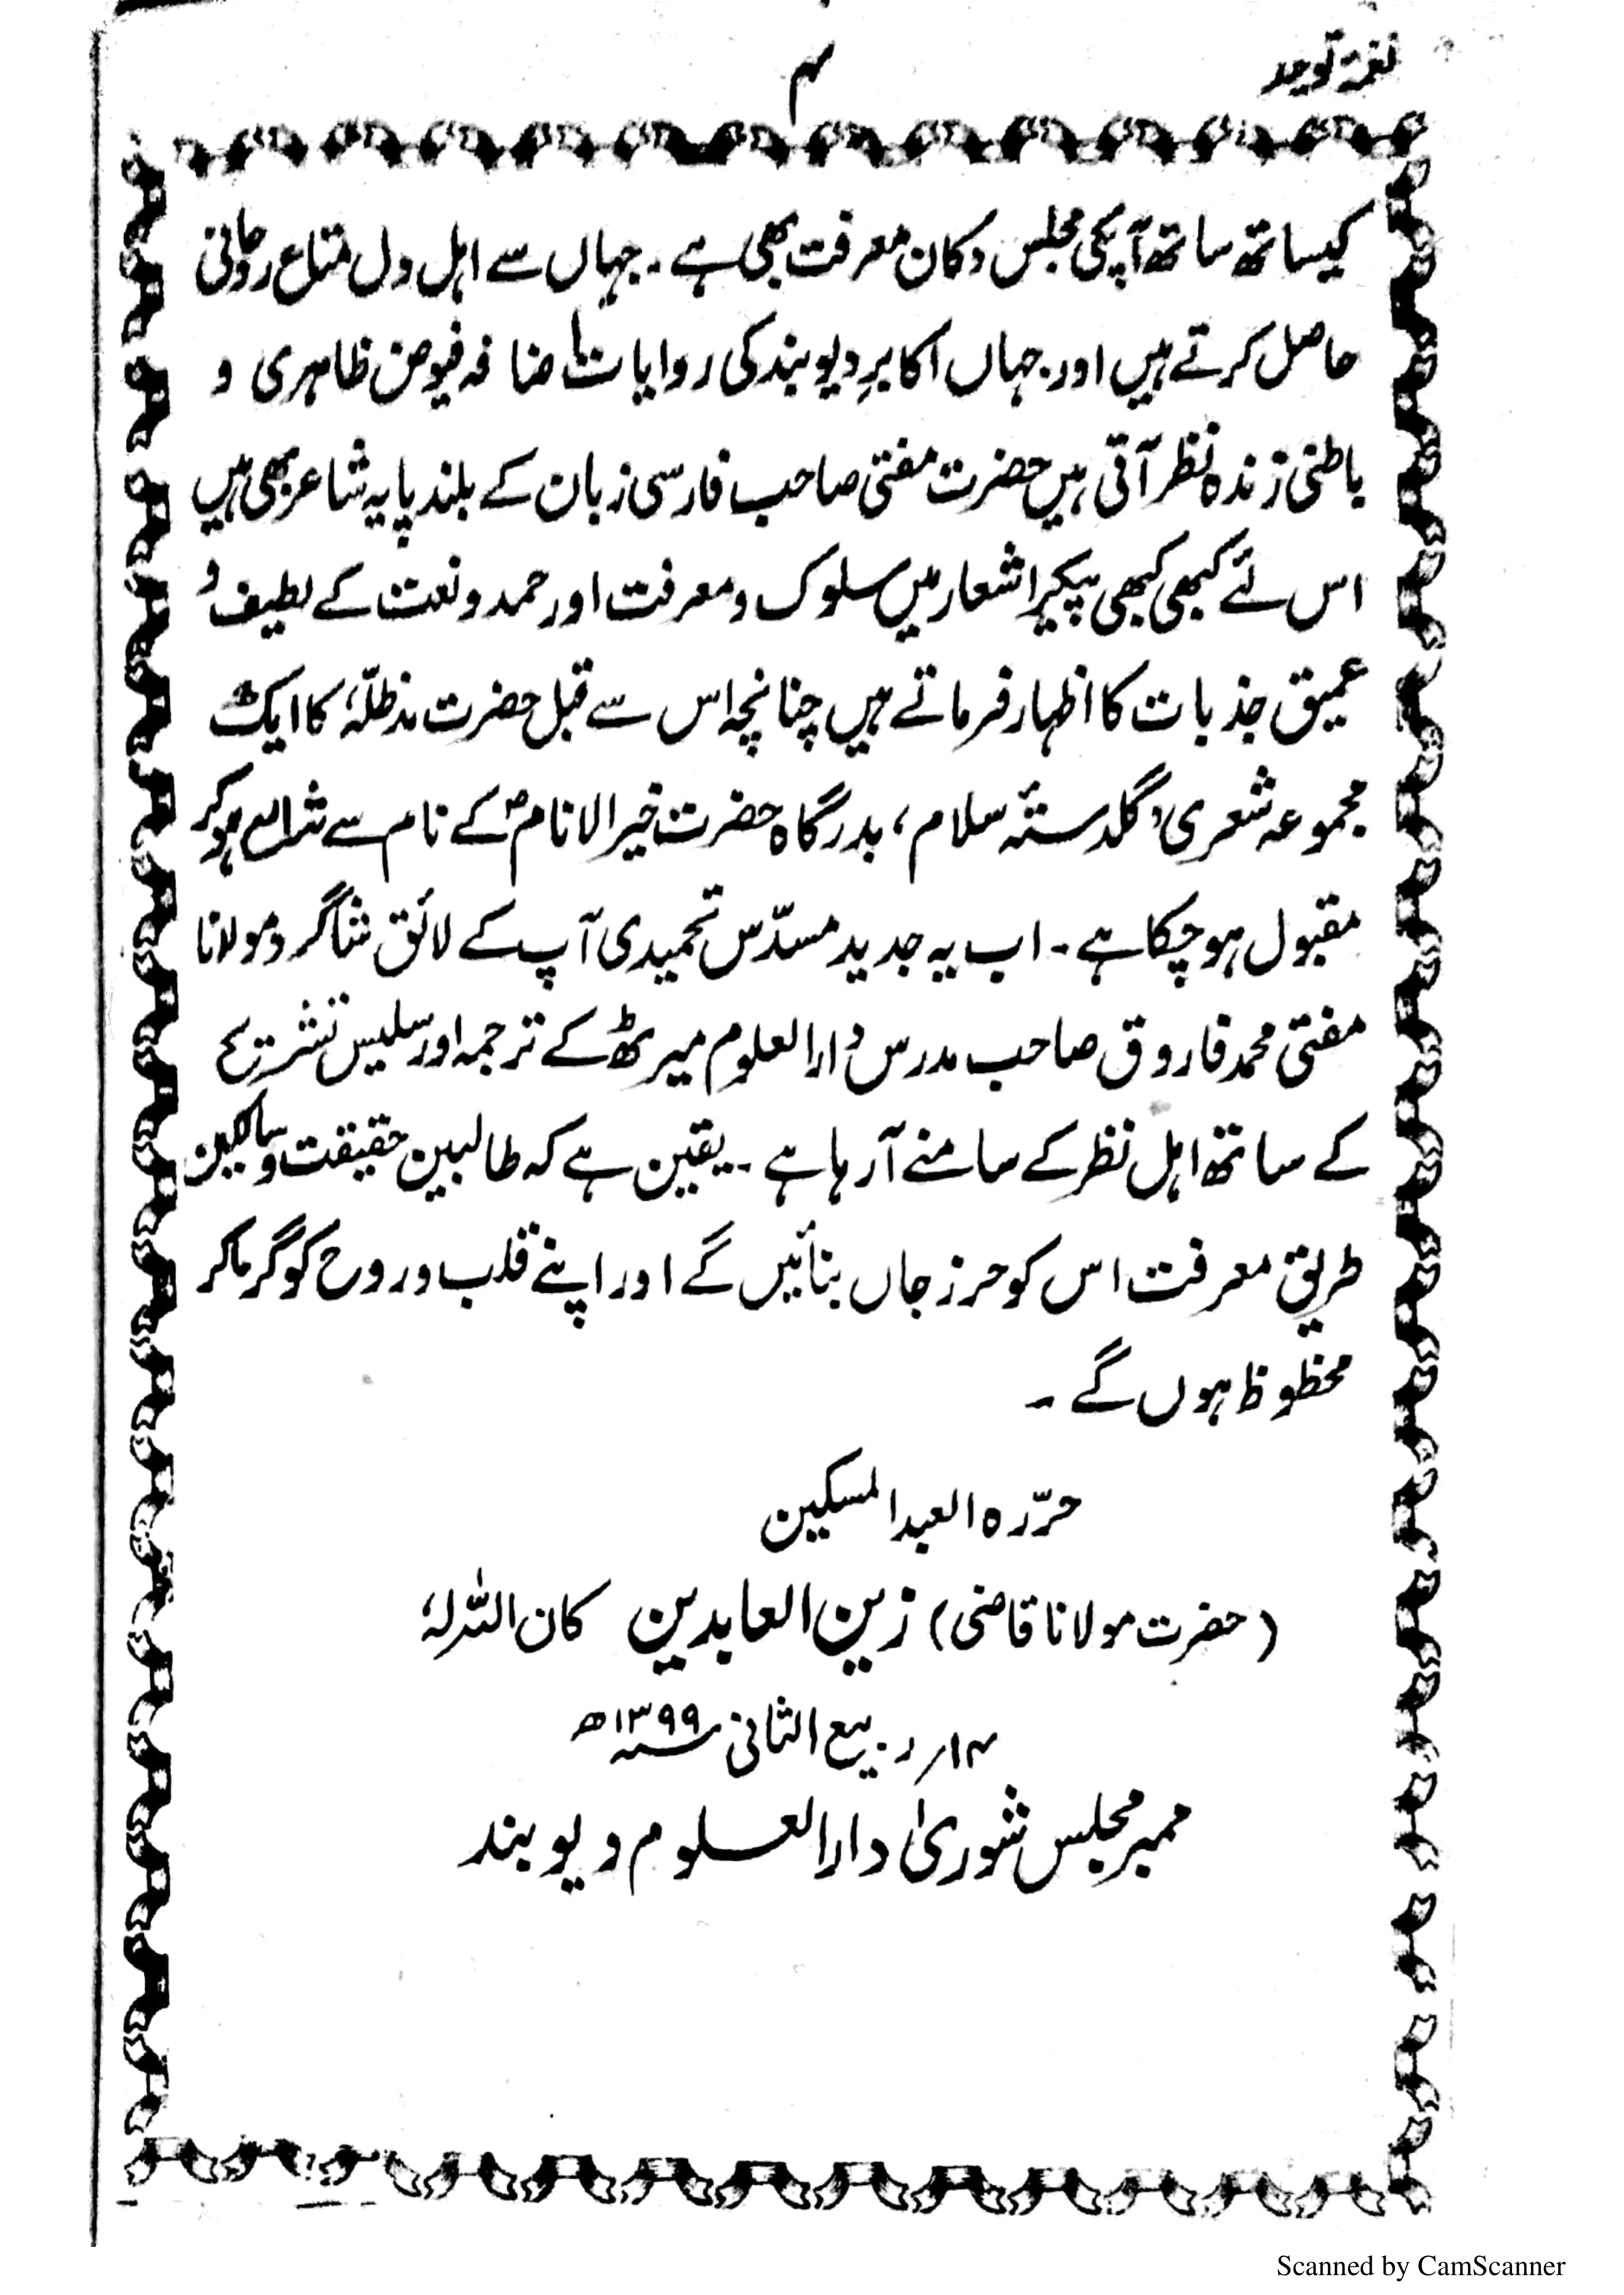 نغمۂ توحید
۴
کیساتھ ساتھ آپکی مجلس دکان معرفت بھی ہے۔ جہاں سے اہل دل متاع روحانی
حاصل کرتے ہیں اور جہاں اکابرِ دیوبند کی روایات افاضہ فیوض ظاہری و
باطنی زندہ نظر آتی ہیں حضرت مفتی صاحب فارسی زبان کے بلند پایہ شاعر بھی ہیں
اس لئے کبھی کبھی پیکرِ اشعار میں سلوک و معرفت اور حمد و نعت کے لطیف و
عمیق جذبات کا اظہار فرماتے ہیں چنانچہ اس سے قبل حضرت مدظلّہٗ کا ایک
مجموعہ شعری ’گلدستۂ سلام، بدرگاہ حضرت خیر الانامؐ کے نام سے شائع ہوکر
مقبول ہوچکا ہے۔ اب یہ جدید مسدّس تحمیدی آپ کے لائق شاگرد مولانا
مفتی محمد فاروق صاحب مدرس دارالعلوم میرٹھ کے ترجمہ اور سلیس تشریح
کے ساتھ اہل نظر کے سامنے آرہا ہے۔ یقین ہے کہ طالبین حقیقت و سالکین
طریق معرفت اس کو حرز جاں بنائیں گے اور اپنے قلب و روح کو گرماکر
محظوظ ہوں گے۔
حرّرہ العبد المسکین
(حضرت مولانا قاضی) زین العابدین کان اللہ لہٗ
۱۴؍ ربیع الثانی ۱۳۹۹ھ
ممبر مجلس شوریٰ دارالعلوم دیوبند
Scanned by CamScanner